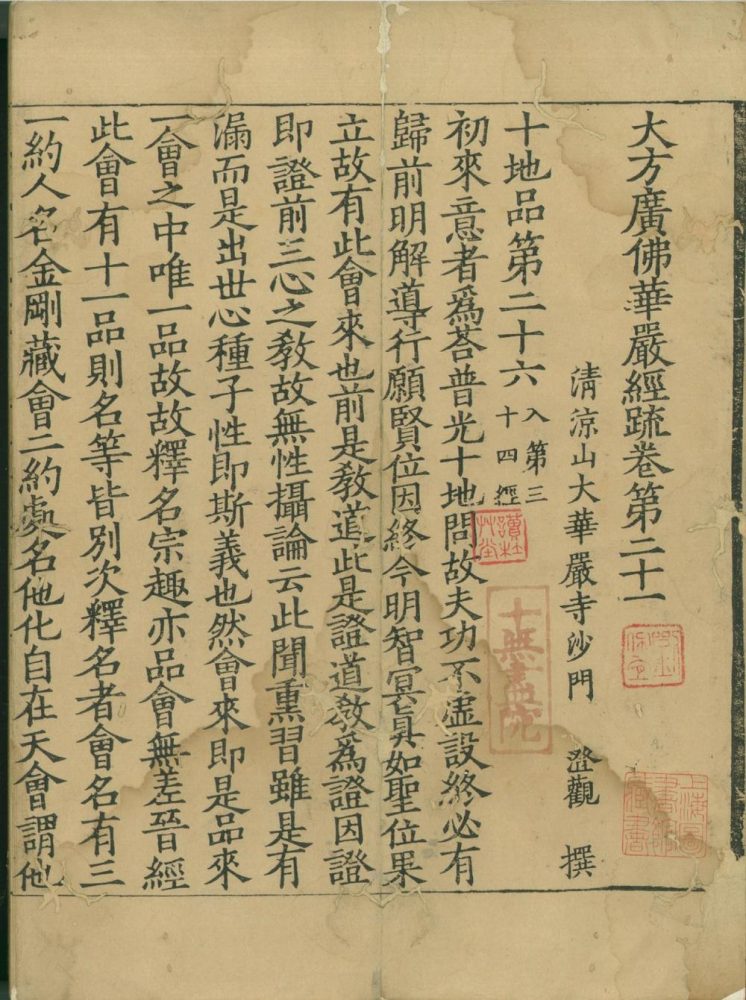 大方廣佛華嚴經䟽卷第二十一
清涼山大華嚴寺沙門　澄觀　撰
十地品第二十六
入第三
十四經
初來意者爲荅普光十地問故夫功不虛設終必有
歸前明解導行願賢位因終今明智冥眞如聖位果
立故有此會來也前是敎道此是證道敎爲證因證
即證前三心之敎故無性攝論云此聞熏習雖是有
漏而是出世心種子性即斯義也然會來即是品來
一會之中唯一品故故釋名宗趣亦品會無差晉經
此會有十一品則名等皆別次釋名者會名有三
一約人名金剛藏會二約處名他化自在天會謂他
十無盡院
上海圖書館藏書